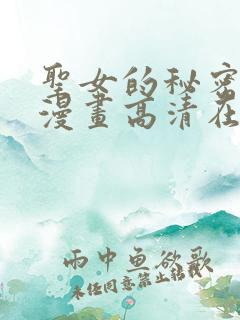 聖女的秘密
漫畫高清在
雨中魚欲歌
未经同意禁止转载